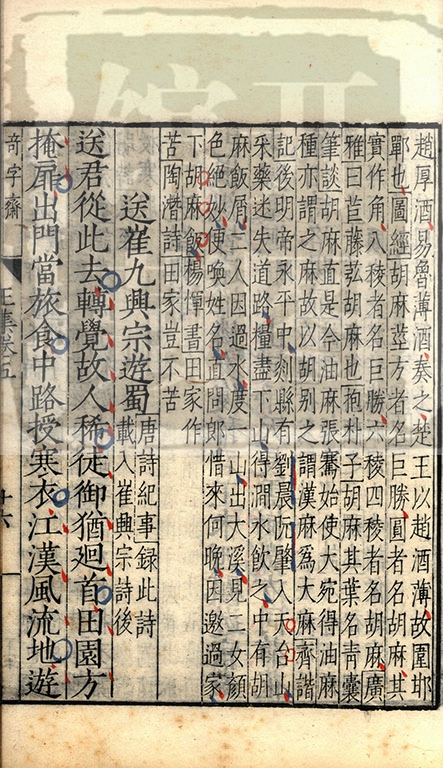 趙厚酒易魯薄酒奏之楚王以趙酒薄故圍邯
鄲也圖經胡麻莖方者名巨勝圓者名胡麻其
實作角八稜者名巨勝六稜四稜者名胡麻廣
雅曰苣藤鉉胡麻也抱朴子胡麻其葉名青囊
筆談胡麻直是今油麻張騫始使大宛得油麻
種亦謂之麻故以胡別之謂漢麻爲大麻齊諧
記後明帝永平中剡縣有劉晨阮肇入天台山
采藥迷失道路糧盡下山得澗水飲之中有胡
麻飯屑二人因過水度一山出大溪見二女顏
色絕妙便喚姓名直問郎借來何晚因邀過家
下胡麻飯楊惲書田家作
苦陶潛詩田家豈不苦
送崔九興宗遊蜀
唐詩紀事録此詩
載入崔興宗詩後
送君從此去轉覺故人稀徒御猶廻首田園方
掩扉出門當旅食中路授寒衣江漢風流地遊
奇字齋
王集卷五
十六